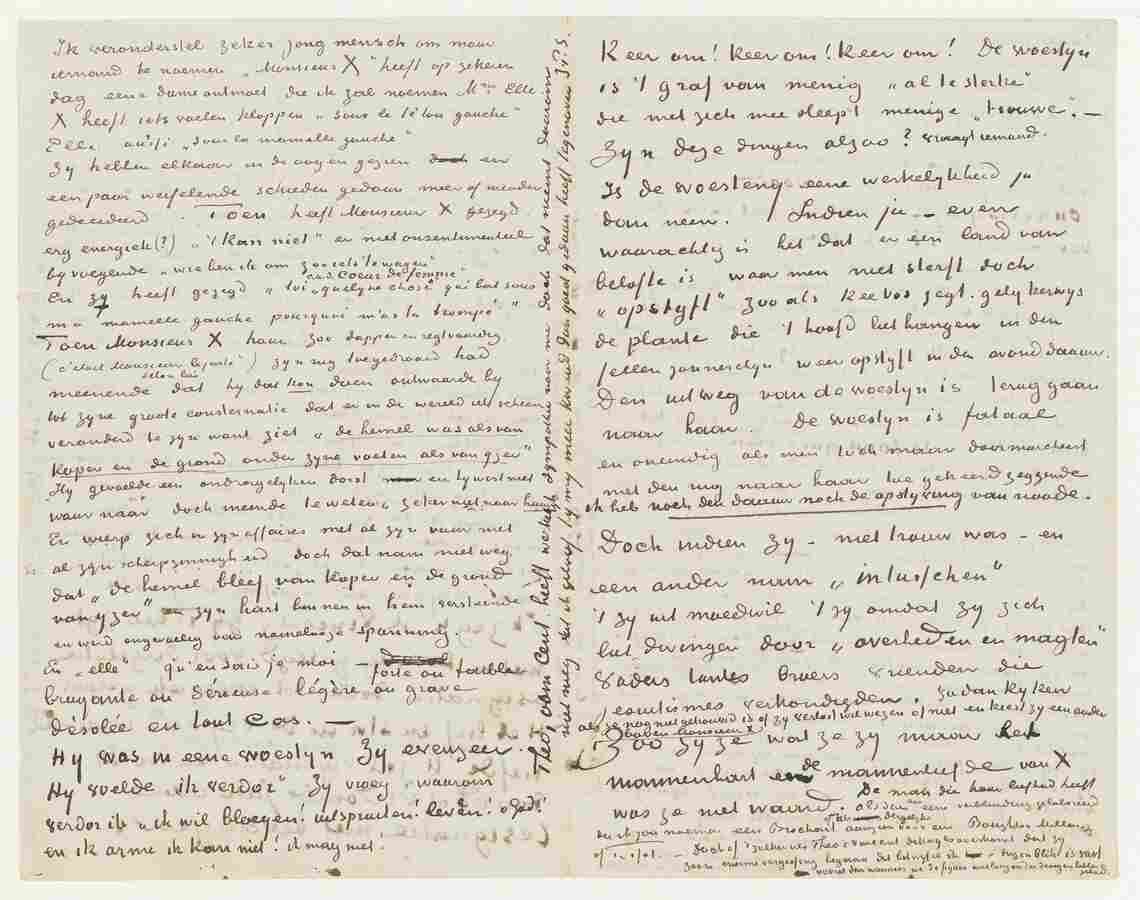 Ik veronderstel zeker jong mensch om maar
iemand te noemen „Monsieur X” heeft op zekeren
dag eene dame ontmoet die ik zal noemen Mme Elle.
X heeft iets voelen kloppen „sous le téton gauche”
Elle aussi „sous la mamelle gauche”
Zy hebben elkaar in de oogen gezien doch en
een paar weifelende schreden gedaan meer of minder
gedecideerd. Toen heeft Monsieur X gezegd
erg energiek(?) „'t kan niet” en niet onsentimenteel
byvoegende „wie ben ik om zoo iets te wagen”
aux Coeur de femme”
En zy heeft gezegd „toi „quelque chose” qui bat sous
ma mamelle gauche pourquoi m'as tu trompé”
Toen Monsieur X haar zoo dapper en regtvaardig
(c'était Monsieur le juste) zyn rug toegedraaid had
selon lui
meenende dat hy dat kon doen ontwaarde hy
tot zyne groote consternatie dat er in de wereld iets scheen
veranderd te zyn want ziet „de hemel was als van
koper en de grond onder zyne voeten als van yzer”
Hy gevoelde een ondragelyken dorst en hy wist niet
waar naar doch meende te weten zeker niet naar haar
En wierp zich in zyn affaires met al zyn vuur met
al zyn scherpzinnigheid doch dat nam niet weg
dat „de hemel bleef van koper en de grond
van yzer” zyn hart binnen in hem versteende
en werd ongevoelig van namelooze spanning.
En „elle” qu'en sais je moi – forte ou faible
bruyante ou sérieuse légère ou grave
désolée en tout cas. —
Hy was in eene woestyn Zy evenzeer.
Hy voelde ik verdor” Zy vroeg waarom
verdor ik „ik wil bloeyen! uitspruiten! leven! o God!
en ik arme ik kan niet! ik mag niet!
Theo, oom Cent heeft werkelyk sympathie voor me doch dat neemt daarom
niet weg dat ik geloof hy my meer kwaad dan goed gedaan heeft tegenover J.V.S.
Keer om! keer om! keer om! De woestyn
is 't graf van menig „al te sterke”
die met zich mee sleept menige „trouwe”. —
Zyn deze dingen alzoo? vraagt iemand.
Is de woesteny eene werkelykheid ja
dan neen. Indien ja — even
waarachtig is het dat er een land van
belofte is waar men niet sterft doch
„opstyft” zoo als Kee Vos zegt. gelykerwys
de plante die 't hoofd liet hangen in den
fellen zonneschyn weer opstyft in den avonddaauw.
Den uitweg van de woestyn is terug gaan
naar haar. De woestyn is fataal
en oneindig als men toch maar doormarcheert
met den rug naar haar toe gekeerd zeggende
ik heb noch den daauw noch de opstyving van noode.
Doch indien zy – niet trouw was – en
een ander nam „intusschen”
't zy uit moedwil 't zy omdat zy zich
liet dwingen door „overheden en magten”
vaders tantes broers vrienden die
jesuitismes verkondigden. Ja dan kyk er
als ze nog niet gehuwd is of zy verlost wil wezen of niet en kiest zy een ander
boven Monsieur X
Zoo zy ze wat ze zy maar het
mannenhart en de mannenliefde van X
was ze niet waard. De man die haar liefhad heeft
als dan eene verbinding geloasend
die ik zou noemen een Brochart
of 1. of 1. — doch of zulke iets Theo